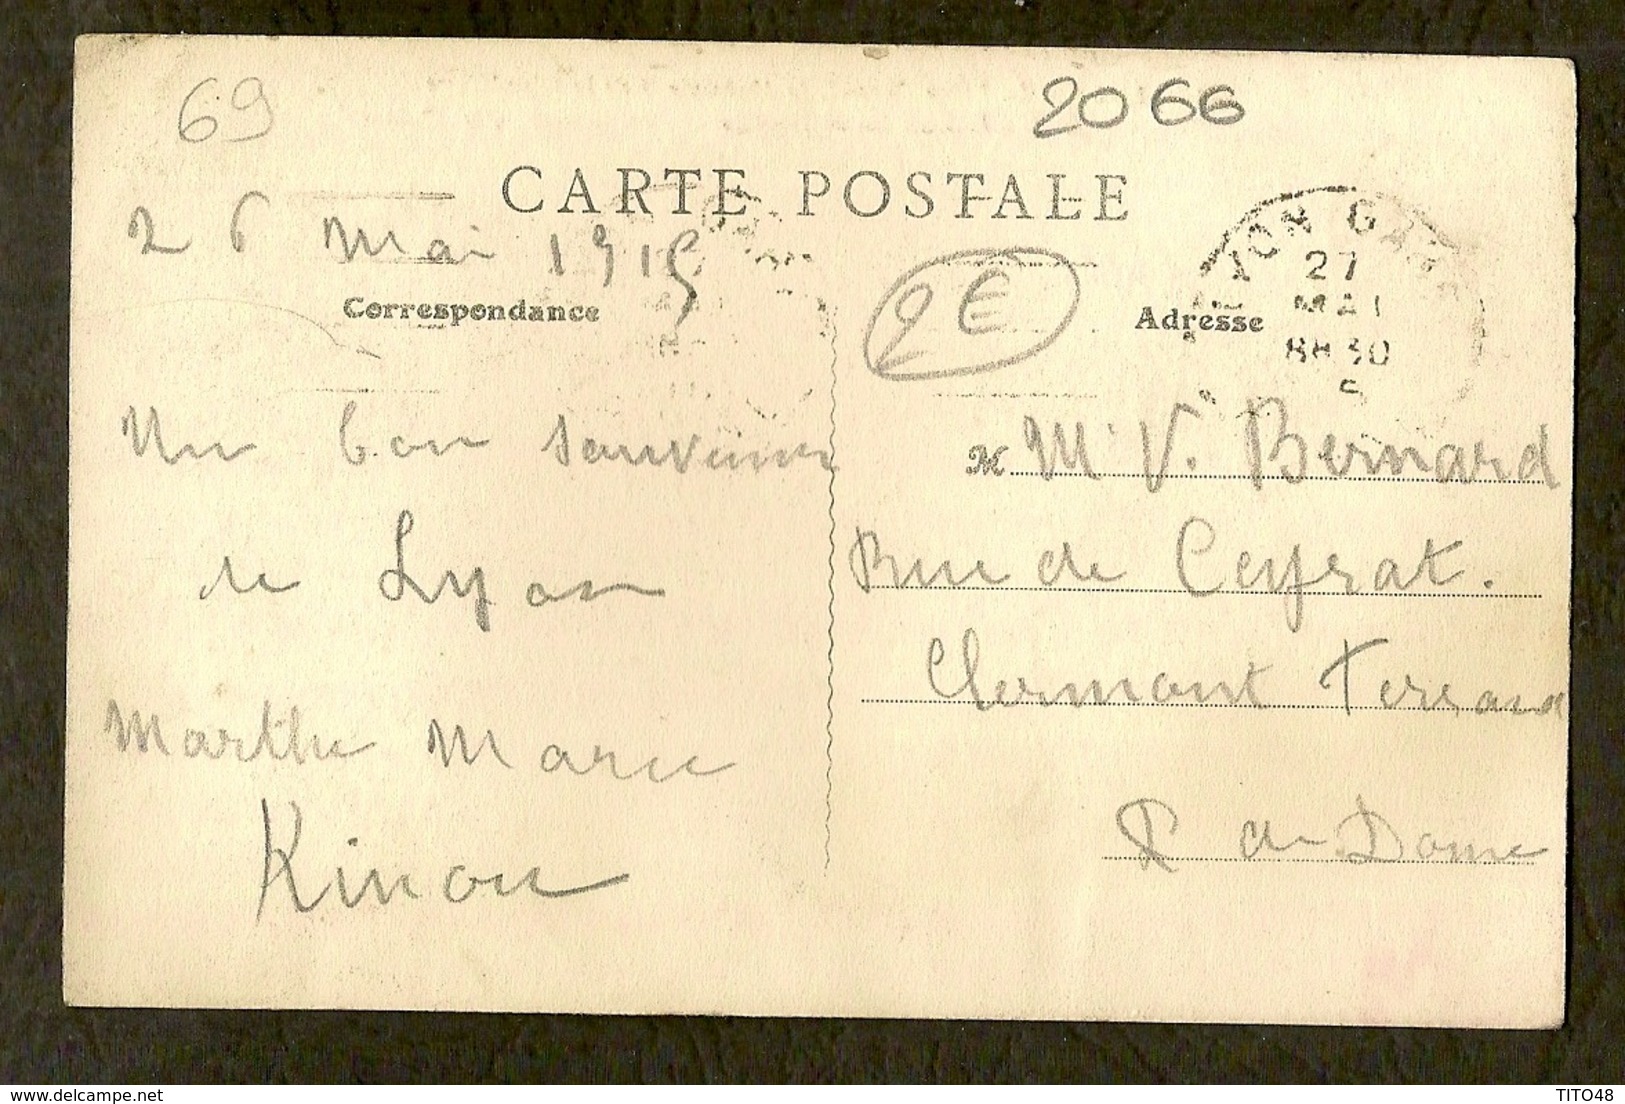 69
2066
CARTE POSTALE
26 Mai 1915
Correspondance
2€
Adresse
LYON GARE
27
MAI
8H30
Un bon souvenir
de Lyon
Marthe Marie
Kinou
M M. V. Bernard
Rue de Ceyrat.
Clermont Ferrand
P de Dome
TITO48